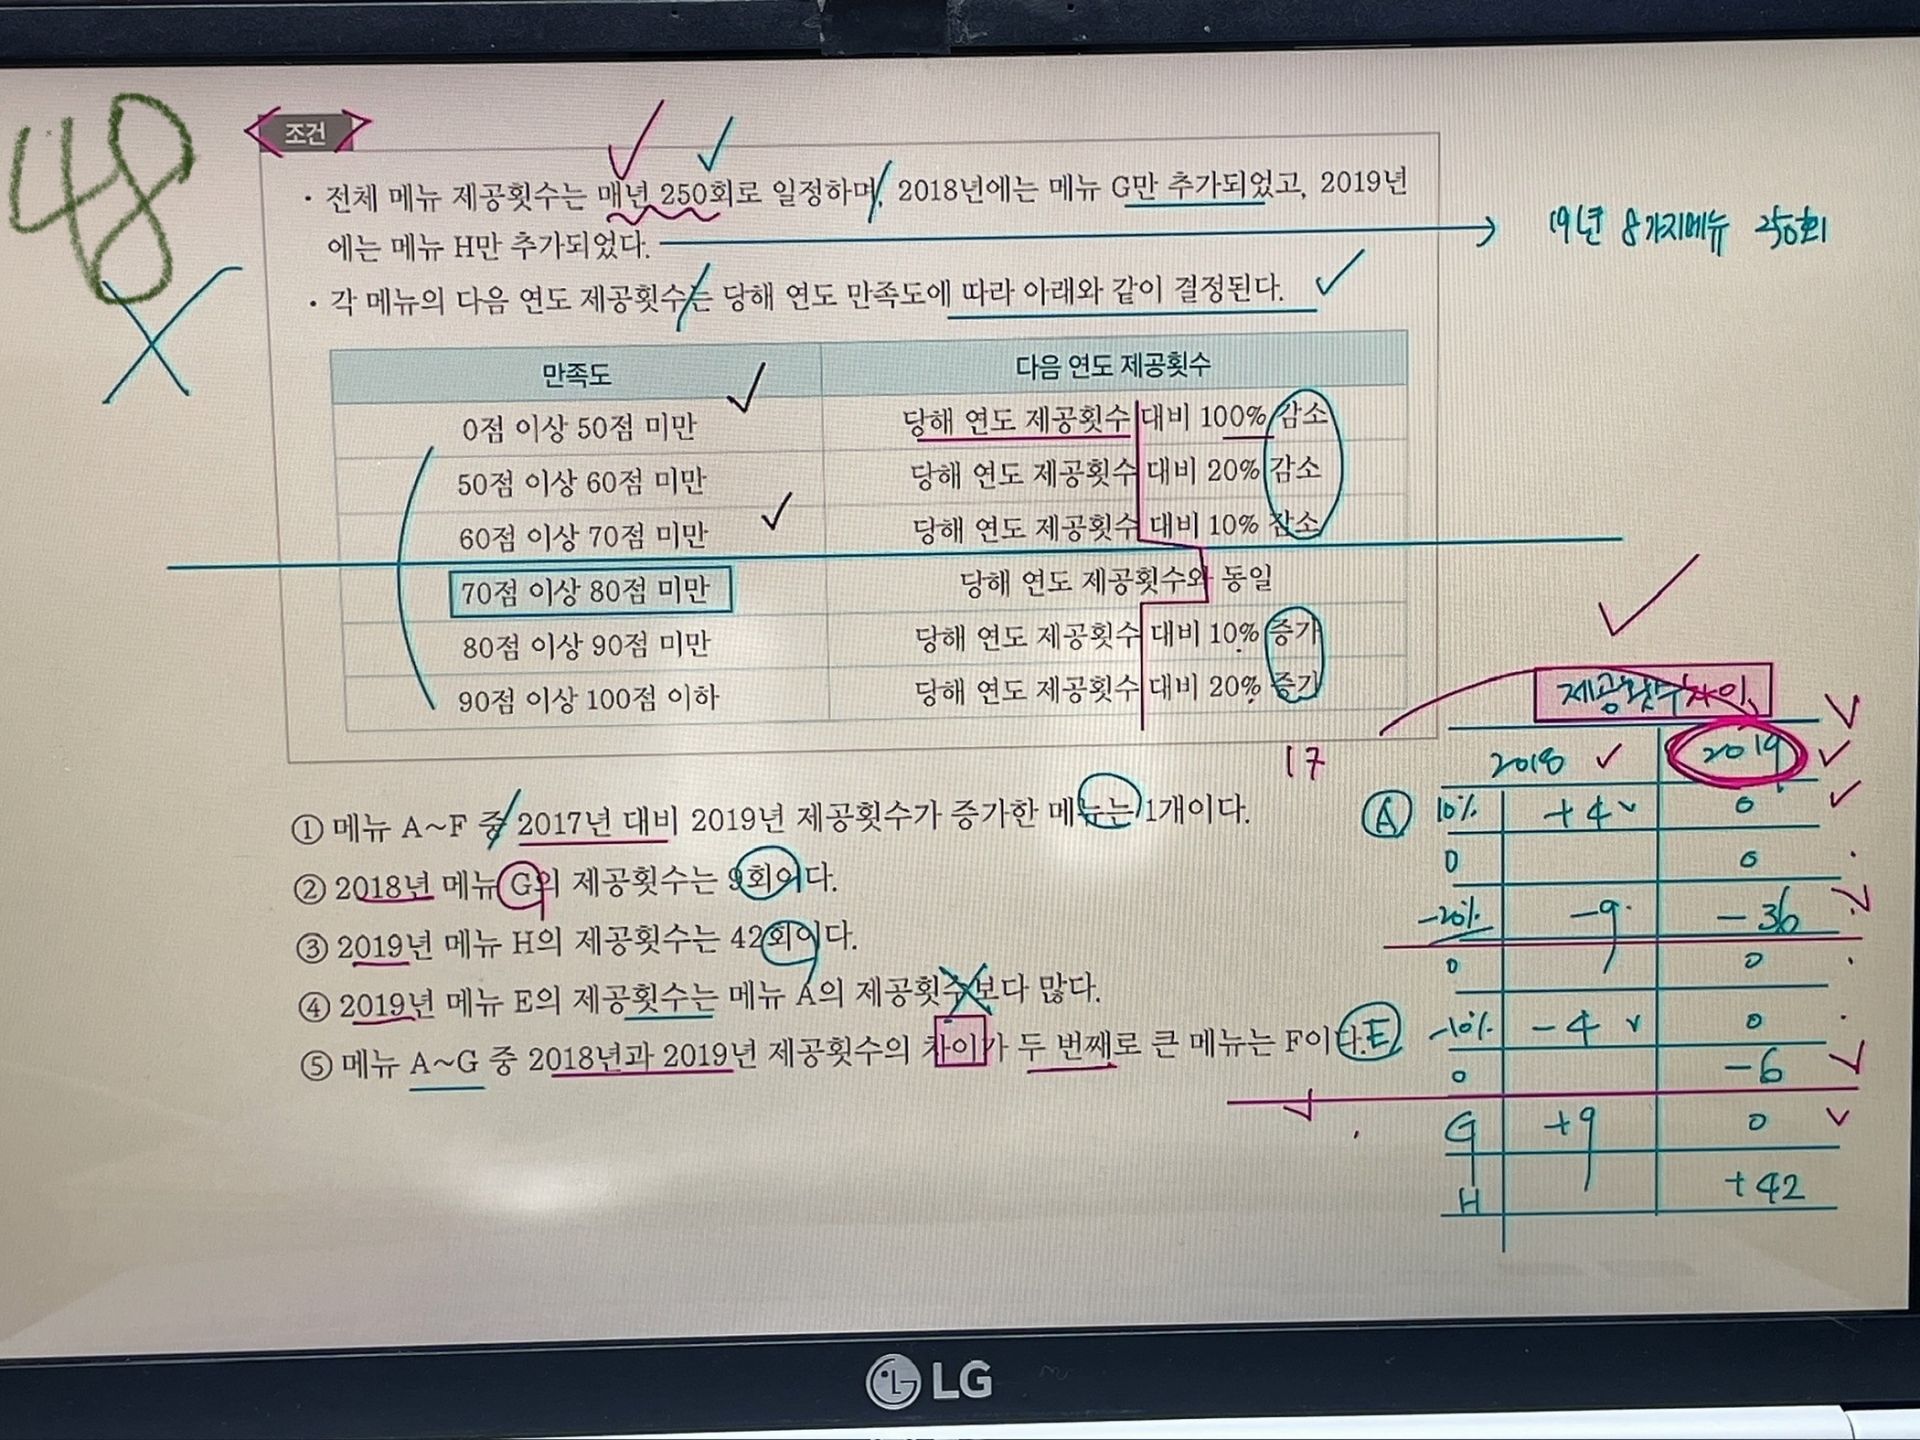 48
조건
· 전체 메뉴 제공횟수는 매년 250회로 일정하며, 2018년에는 메뉴 G만 추가되었고, 2019년
에는 메뉴 H만 추가되었다.
19년 8가지메뉴 250회
· 각 메뉴의 다음 연도 제공횟수는 당해 연도 만족도에 따라 아래와 같이 결정된다.
만족도 다음 연도 제공횟수
0점 이상 50점 미만 당해 연도 제공횟수 대비 100% 감소
50점 이상 60점 미만 당해 연도 제공횟수 대비 20% 감소
60점 이상 70점 미만 당해 연도 제공횟수 대비 10% 감소
70점 이상 80점 미만 당해 연도 제공횟수와 동일
80점 이상 90점 미만 당해 연도 제공횟수 대비 10% 증가
90점 이상 100점 이하 당해 연도 제공횟수 대비 20% 증가
17
① 메뉴 A~F 중 2017년 대비 2019년 제공횟수가 증가한 메뉴는 1개이다.
② 2018년 메뉴 G의 제공횟수는 9회이다.
③ 2019년 메뉴 H의 제공횟수는 42회이다.
④ 2019년 메뉴 E의 제공횟수는 메뉴 A의 제공횟수보다 많다.
⑤ 메뉴 A~G 중 2018년과 2019년 제공횟수의 차이가 두 번째로 큰 메뉴는 F이다.
제공횟수차이
2018 2019
A 10% +4 0
0 0
-20% -9 -36
0 0
E -10% -4 0
0 -6
G +9 0
H +42
LG